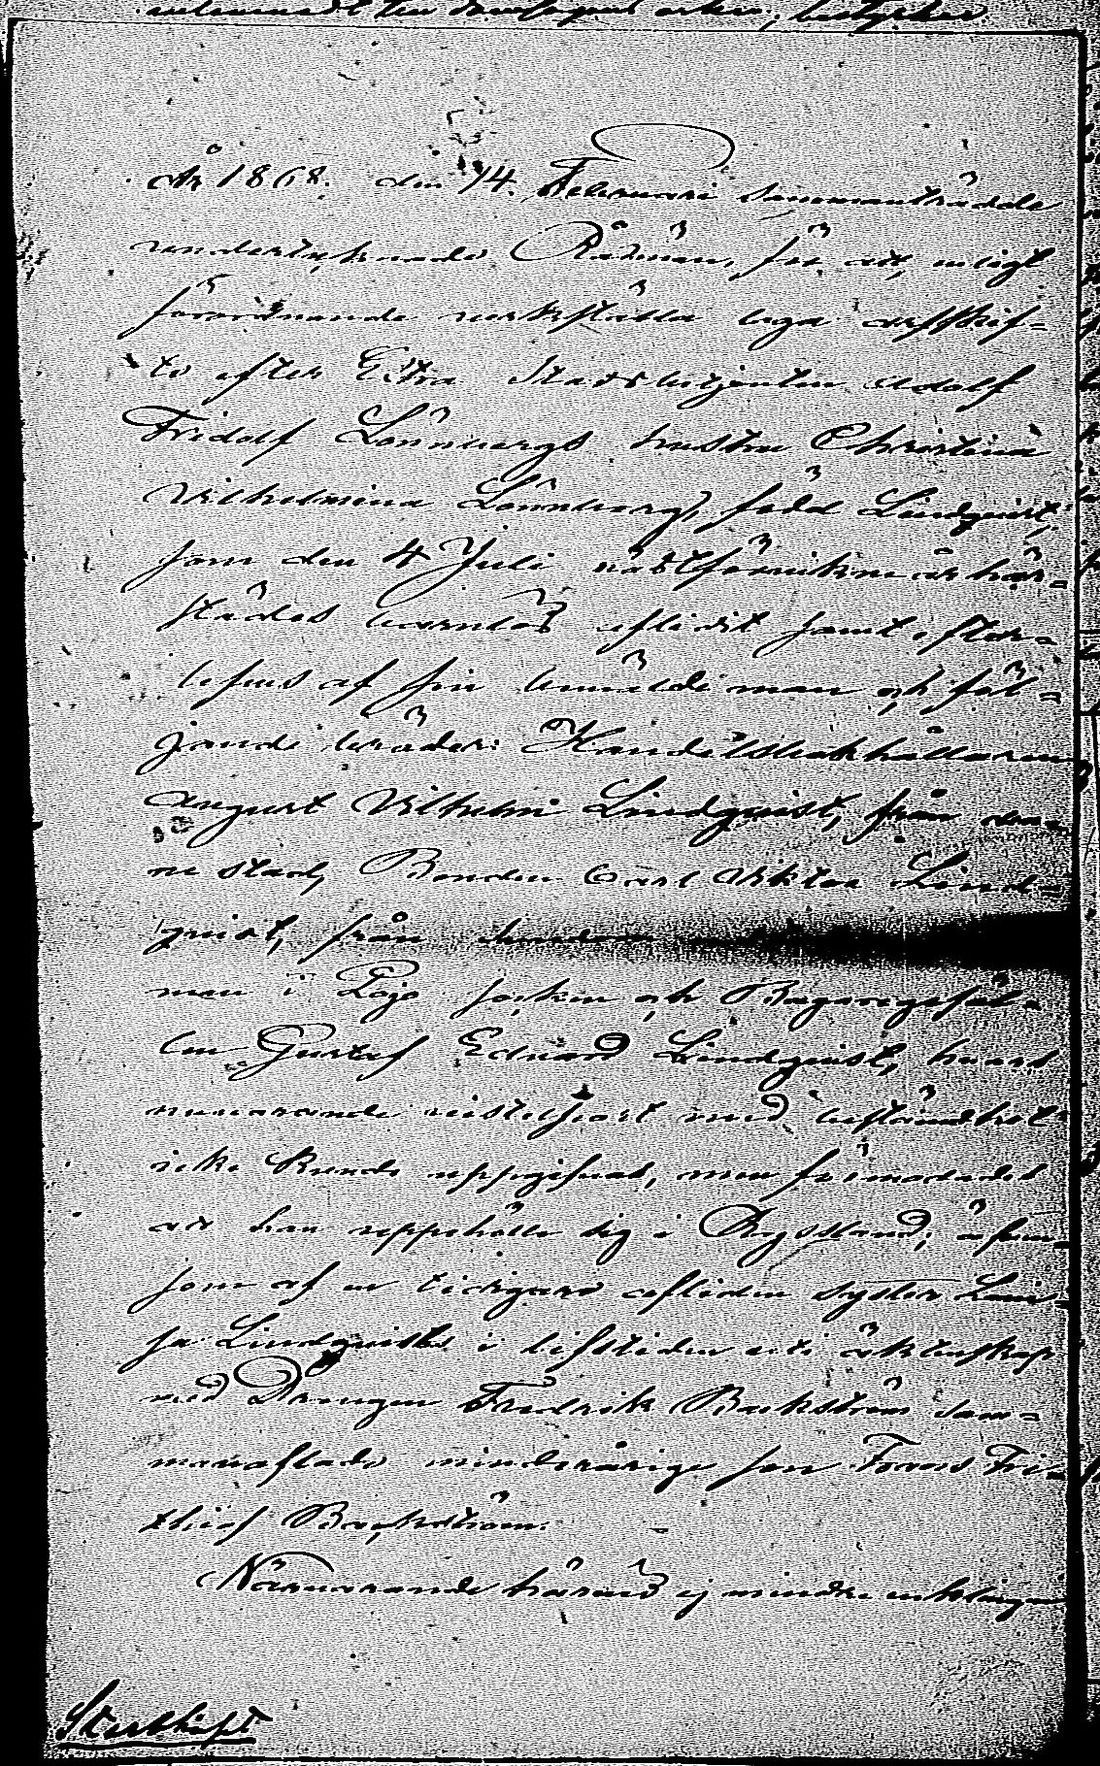 År 1868. den 14. Februari sammanträdde
undertecknade Rådmän, för att, enligt
förordnande verkställa laga arfskif-
te efter Extra Stadsbetjenten Adolf
Fridolf Lönnbergs hustru Christina
Vilhelmina Lönnberg, född Lindqvist,
som den 4 Juli näst förvikne år här-
städes barnlös aflidit samt efter-
lefves af sin bemälde man och föl-
jande bröder: Handelsbokhållaren
August Vilhelm Lindqvist, från den-
na stad, Bonden Carl Viktor Lind-
qvist, från
men i Lojo socken och Bagaregesäl-
len Gustaf Eduard Lindqvist, hvars
nuvarande vistelseort med bestämdhet
icke kunde uppgifvas, men förmodades
att han uppehåller sig i Ryssland; äfven
som af en tidigare afliden syster Lovi-
sa Lindqvists i lifstiden uti äktenskap
med Drengen Fredrik Backström sam-
manaflade minderårige son Frans Fri-
thiof Backström.
Närvarande härvid ej mindre enklingen
Sterbhuset